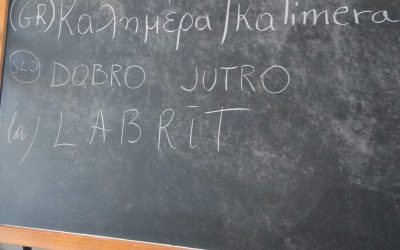 (GR) Καλημέρα/Kalimera
SLO DOBRO JUTRO
(lā) LABRĪT